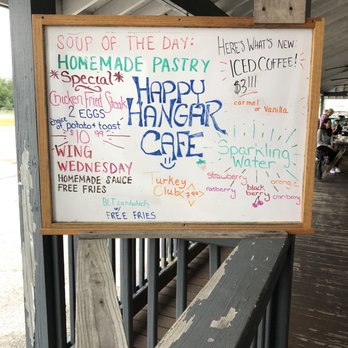 SOUP OF THE DAY:
HOMEMADE PASTRY
*Special*
Chicken Fried Steak
2 EGGS
choice of potato + toast
$10.99
WING
WEDNESDAY
HOMEMADE SAUCE
FREE FRIES
HAPPY
HANGAR
CAFE
Turkey
Club
7.99
BLT sandwich
w/ FREE FRIES
HERE'S WHAT'S NEW:
ICED COFFEE!
$3!!!
carmel or Vanilla
Sparkling
Water
Strawberry
orang
raspberry
black
berry
cranberry